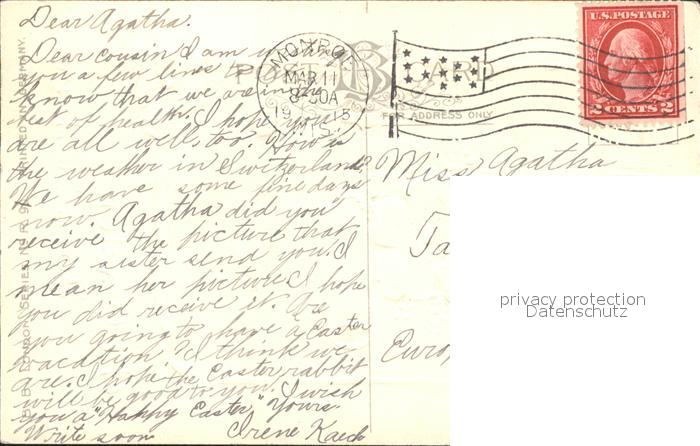 Dear Agatha.
Dear cousin I am writing
you a few lines to let you
know that we are in the
best of health. I hope you
are all well, too. How is
the weather in Switzerland?
We have some fine days
now. Agatha did you
receive the picture that
my sister send you. I
mean her picture I hope
you did receive it. Are
you going to have a Easter
vacation I think we
are. I hope the Easter rabbit
will be good to you. I wish
you a "Happy Easter" Yours
Write soon Irene Kaech
MONROE
MAR 11
8-30A
1915
WIS.
POST CARD
FOR ADDRESS ONLY
U.S. POSTAGE
2 CENTS 2
Miss Agatha
Ta
Euro
privacy protection
Datenschutz
LONDON. SERIES No.
PRINTED IN GERMANY.